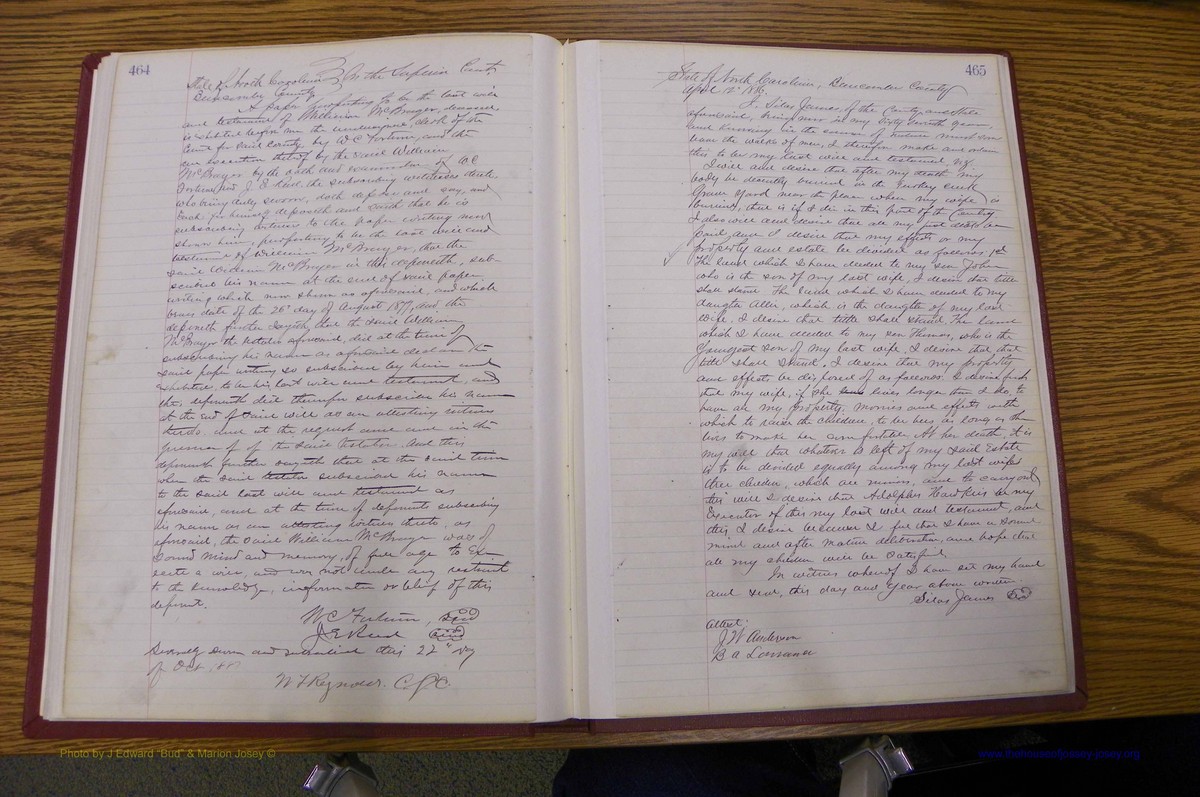 464
State of North Carolina } In the Superior Court
Buncombe County
A paper purporting to be the last will
and testament of William McBrayer, deceased
is exhibited before me the undersigned, clerk of the
Court for said county by W C Fortune, and the
due execution thereof by the said William
McBrayer by the oath and examination of W.C
Fortune, and J. E. Reed, the subscribing witnesses thereto
who being duly sworn, doth depose and say, and
each for himself deposeth and saith that he is
subscribing witness to the paper writing now
shown him, purporting to be the last will and
testament of William McBrayer, that the
said William McBrayer in the presence, sub-
scribed his name at the end of said paper
writing which now shown as aforesaid, and which
bears date of the 26" day of August 1877, and the
deponent further saith, that the said William
McBrayer the testator aforesaid, did at the time of
subscribing his name as aforesaid declare the
said paper writing so subscribed by him and
exhibited, to be his last will and testament, and
this deponent did thereupon subscribe his name
at the end of said will as an attesting witness
thereto, and at the request and in the
presence of the said testator. And this
deponent further sayeth that at the said time
when the said testator subscribed his name
to the said last will and testament as
aforesaid, and at the time of deponents subscribing
his name as an attesting witness thereto, as
aforesaid, the said William McBrayer was of
sound mind and memory, of full age to ex-
ecute a will, and was not under any restraint
to the knowledge, information or belief of this
deponent.
W C Fortune, Seal
J E Reed Seal
Severally sworn and subscribed this 22" day
of Oct
W T Reynolds. C.S.C.
465
State of North Carolina, Buncombe County
April 12"
I, Silas James, of the County and State
aforesaid, being now in my sixty year
and knowing in the course of nature must soon
leave the walks of men, I therefore make and ordain
this to be my last will and testament, viz.
I will and desire that after my death my
body be decently buried in the Turkey creek
Grave yard near the place where my wife is
buried, that is if I die in this part of the Country
I also will and desire that all my just debts be
paid, and I desire that my effects or my
property and estate be divided as follows 1st
The land which I have deeded to my son John
who is the son of my last wife, I desire that title
shall stand. The land which I have deeded to my
daughter Allie, which is the daughter of my last
wife, I desire that title shall stand. The land
which I have deeded to my son Thomas, who is the
youngest son of my last wife I desire that that
title shall stand. I desire that my property
and effects be disposed of as follows. I desire first
that my wife, if she lives longer than I do, to
have all my property, monies and effects with
which to raise the children, to be hers as long as she
lives to make her comfortable. At her death, it is
my will that whatever is left of my said Estate
is to be divided equally among my last wifes
three children, which are minors, and to carry out
this will I desire that Adolphus Hawkins be my
Executor of this my last will and testament, and
this I desire because I feel that I have a sound
mind and after mature deliberation, and hope that
all my children will be satisfied.
In witness whereof I have set my hand
and seal, this day and year above written.
Silas James Seal
Attest:
J W Anderson
B A
Photo by J Edward "Bud" & Marion Josey ©
www.thehouseofjossey-josey.org